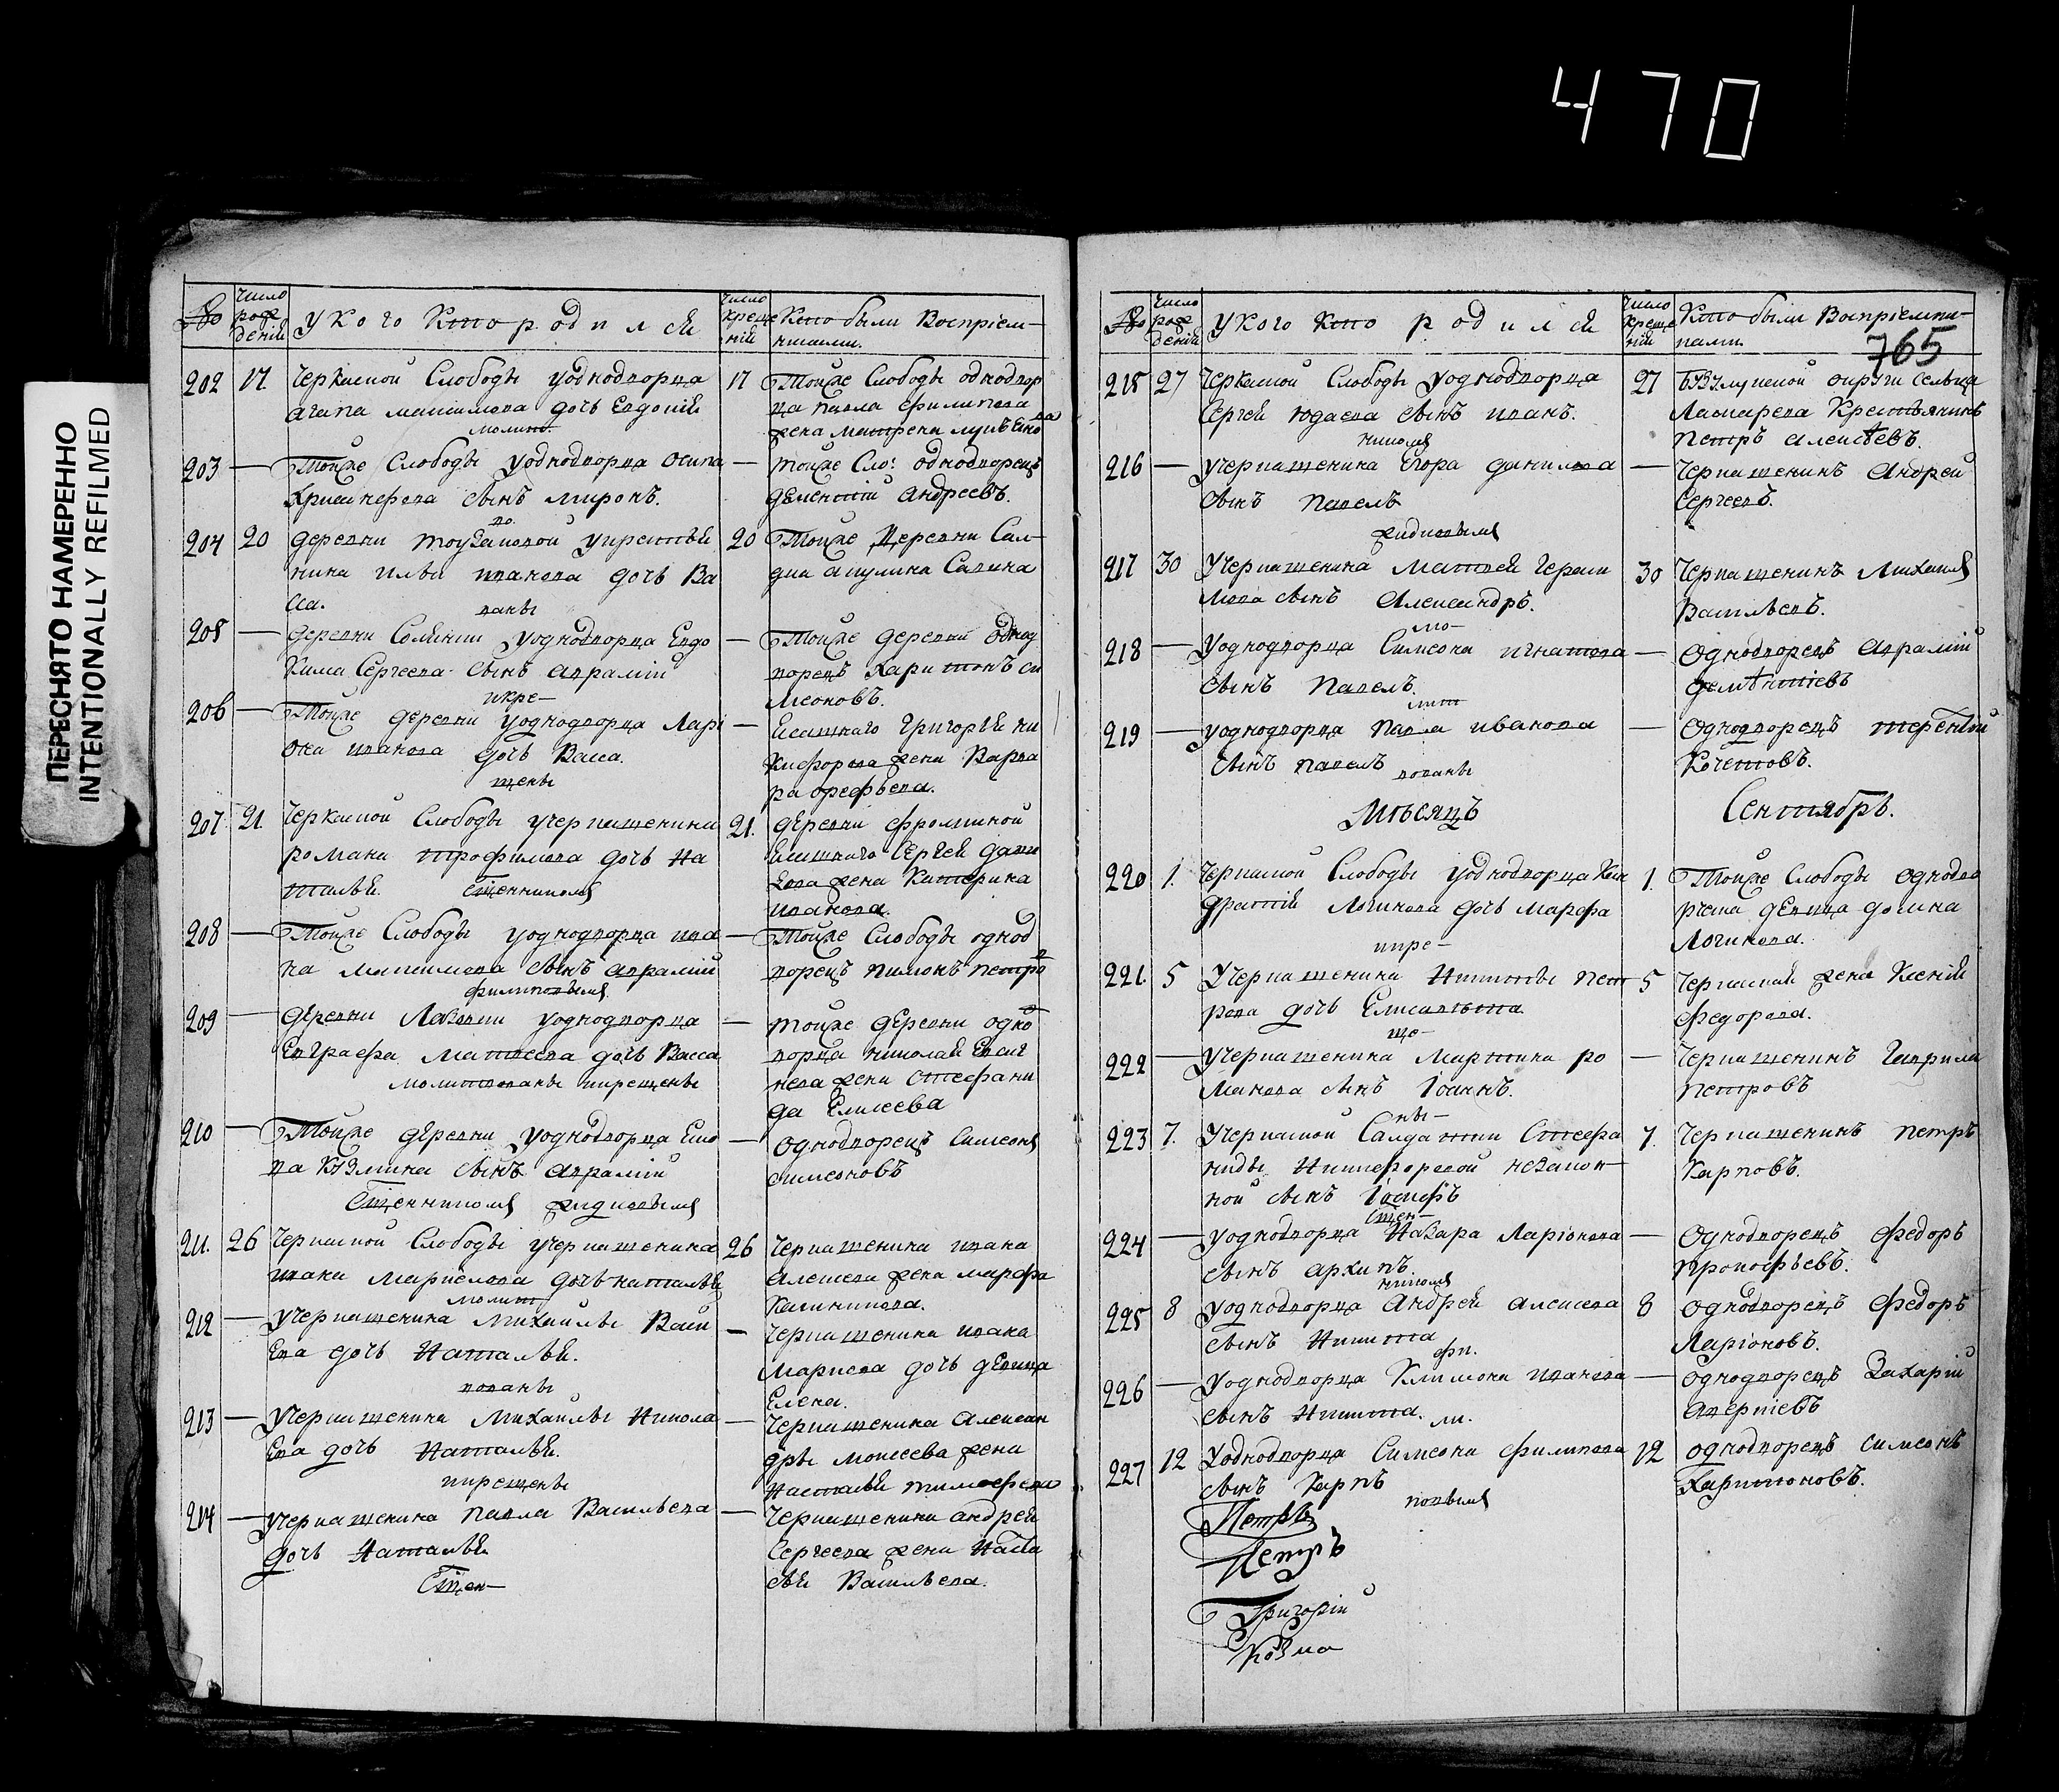 470
ПЕРЕСНЯТО НАМЕРЕННО
INTENTIONALLY REFILMED
№
число рождений
у кого кто родился
число крещений
Кто были Восприемниками.
202 17 Черкаской Слободы у однодворца
Агапа Максимова дочь Евдокий
молит
17 Тойже Слободы однодвор
ца Павла Филипова
жена Матрена
203 — Тойже Слободы у однодворца Осипа
Христофора сынъ Миронъ.
во
— тойже Сло: однодворецъ
Дементий Андреевъ.
204 20 деревни у крестья
нина Ильи Иванова дочь Ва
сса.
ваны
20 Тойже Деревни Сал-
дка Акулина Савина
205 — деревни у однодворца Евдо
кима Сергеева сынъ Аврамій
икре-
— Тойже деревни однод
ворецъ Харитонъ Си
меоновъ.
206 — Тойже деревни у однодворца Лари
она Иванова дочь Васса.
щены
— Григорья Ни
кифорова жена Варва
ра
207 21 Черкаской Слободы у черкашенина
Романа Трофимова дочь На
талья. Сщенникомъ
21. деревни
Сергея
жена Катерина
Иванова.
208 — Тойже Слободы у однодворца Ива
на Максимова сынъ Аврамій
Филиповымъ
— Тойже Слободы однод
ворецъ Пимонъ Петро
209 — деревни у однодворца
Евграфа Матвеева дочь Васса
молитвованы икрещены
— тойже деревни одно
ворца Николая
жена Стефани
да Елисеева
210 — Тойже деревни у однодворца
Кузмина сынъ Аврамій
Сщенникомъ Жидковымъ
— однодворецъ Симеонъ
Симеоновъ
211. 26 Черкаской Слободы у черкашенина
Ивана Маркелова дочь Наталья
молит
26 Черкашенина Ивана
Алексева жена Марфа
Калиникова.
212 — у черкашенина Михайлы Васи
ева дочь Наталья.
вованы
— Черкашенина Ивана
дочь девица
Елена.
213 — у черкашенина Михайлы Никола
ева дочь Наталья.
икрещены
— Черкашенина Алексан
дры Моисеева жена
Наталья Тимофеева
214 — у черкашенина Павла Васильева
дочь Наталья
Сщен-
— Черкашенина Андрея
Сергеева жена Наста
сья Васильева.
№
число рождений
у кого кто родился
число крещений
Кто были Восприемниками.
765
215 27 Черкаской Слободы у однодворца
Сергея Юдаева сынъ Иванъ.
никомъ
27 округи сельца
Крестьянинъ
Петръ Алексеевъ.
216 — у черкашенина Егора Данилова
сынъ Павелъ
Жидковымъ
— Черкашенинъ Андрей
Сергеевъ.
217 30 у черкашенина Матвея Гераси
мова сынъ Александръ.
мо-
30 Черкашенинъ Михаилъ
Васильевъ.
218 — у однодворца Симеона Игнатова
сынъ Павелъ.
лит
— Однодворецъ Аврамій
Дементиевъ
219 — у однодворца Павла Иванова
сынъ Павелъ
вованы
— Однодворецъ Терентий
Кочетовъ.
Месяцъ Сентябрь.
220 1. Черкаской Слободы у однодворца Кон
дратий Логинова дочь Марфа
икре-
1. Тойже Слободы однодво
рчика девица Домна
Логинова.
221. 5 у черкашенина Никиты Пет
рова дочь Елисавета
ще-
5 Черкашки жена Ксения
Федорова.
222 — у черкашенина Мартина Ро
манова сынъ Іоаннъ.
ны-
— Черкашенинъ Гаврила
Петровъ
223 7. у черкаской Салдатки Стефа
ниды Никифоровой незакон-
ной сынъ Іосифъ
Сщен-
7. Черкашенинъ Петръ
Карповъ.
224 — у однодворца Назара Ларионова
сынъ Архипъ.
никомъ
— Однодворецъ Федоръ
Прокофьевъ.
225 8 у однодворца Андрей Алексеева
сынъ Никита
фи.
8 однодворецъ Федоръ
Ларионовъ.
226 — у однодворца Климона Иванова
сынъ Никита.
ли.
— однодворецъ Захарий
Аверкиевъ
227 12 у однодворца Симеона Филипова
сынъ Карпъ
повымъ
12 однодворецъ Симеонъ
Харитоновъ.
Петръ
Петръ
Григорій
Козма